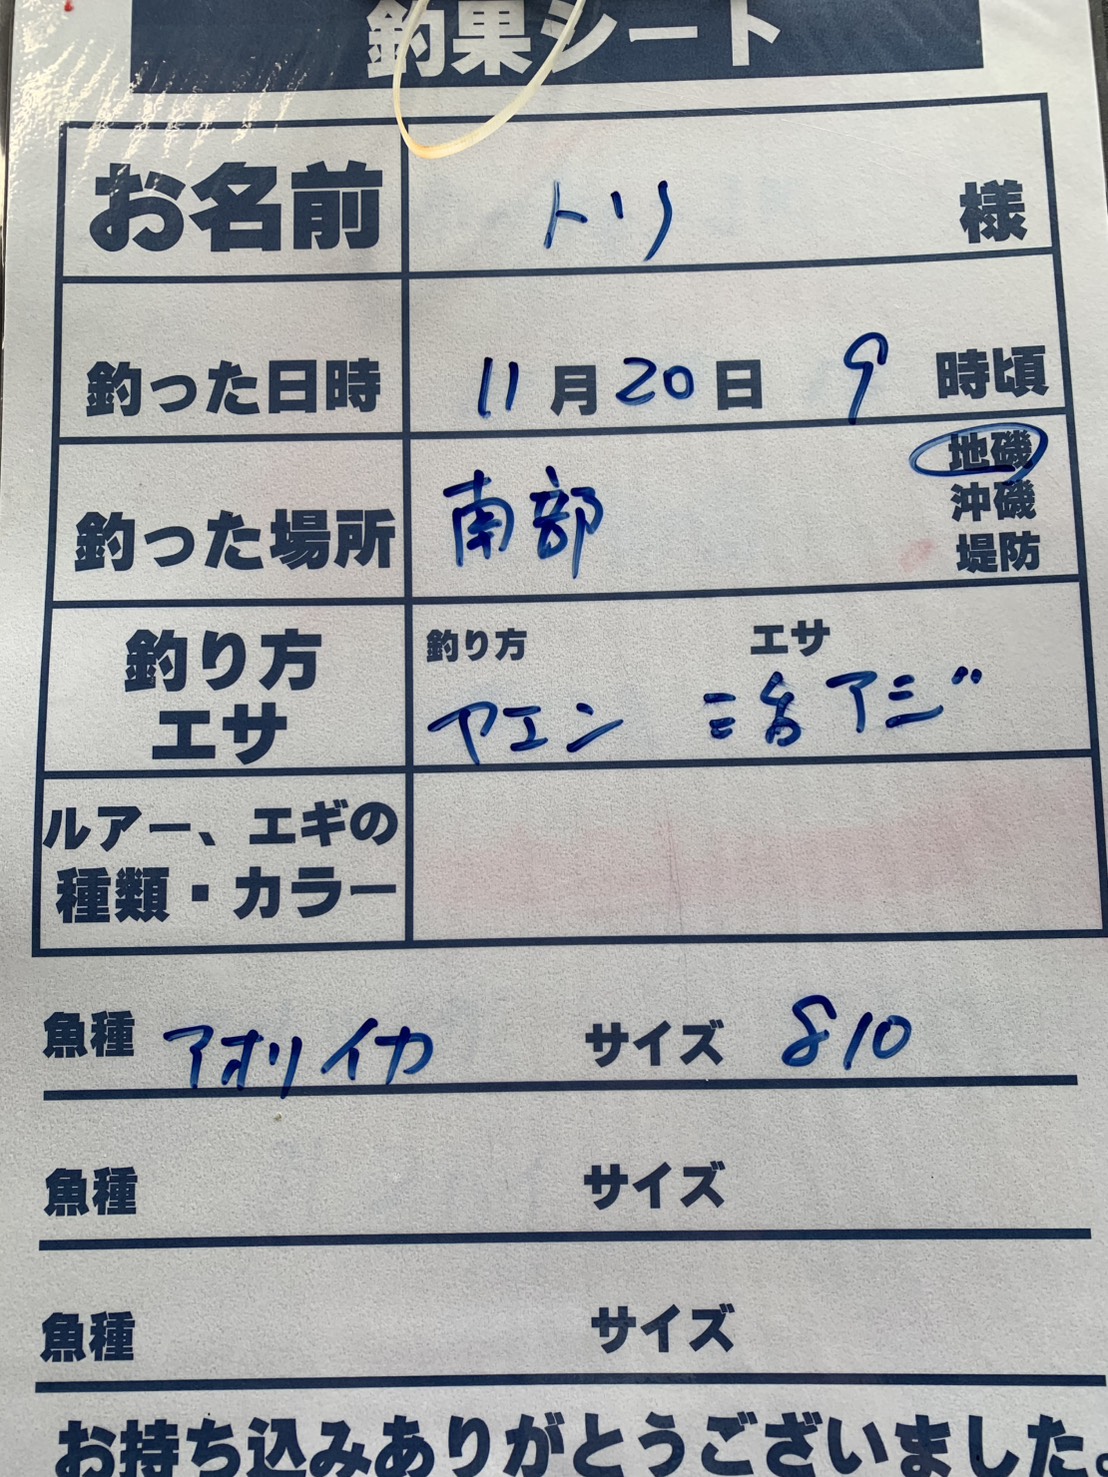 釣果シート
お名前 トリ 様
釣った日時 11月20日 9時頃
釣った場所 南部 地磯
沖磯
堤防
釣り方 エサ
釣り方 エサ
ヤエン 活アジ
ルアー、エギの
種類・カラー
魚種 アオリイカ サイズ 810
魚種 サイズ
魚種 サイズ
お持ち込みありがとうございました。